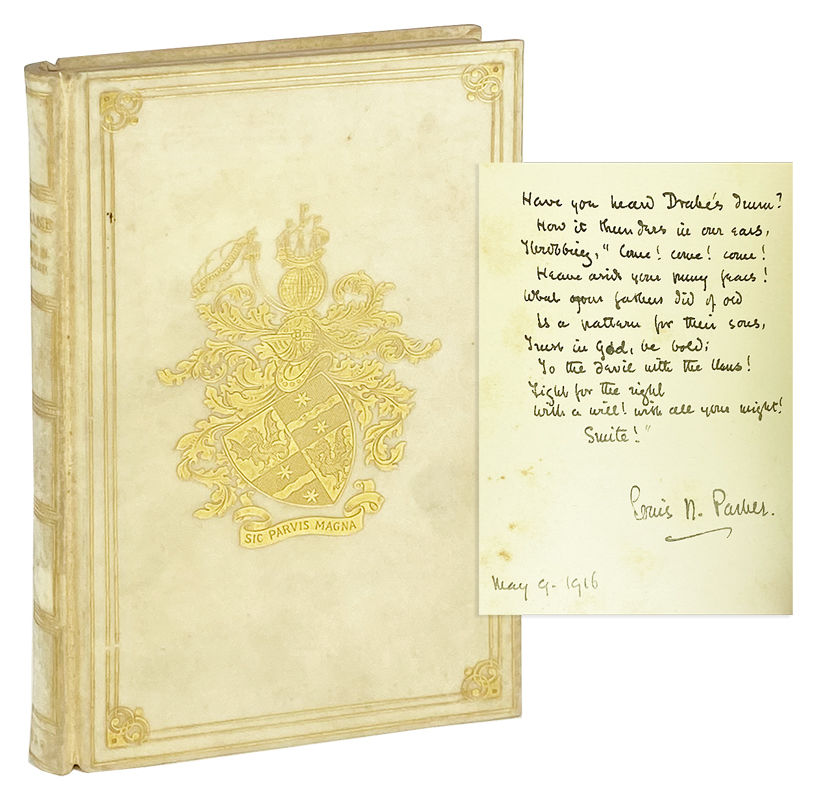 SIC PARVIS MAGNA
Have you heard Drake's drum?
How it thunders in our ears,
Throbbing, "Come! come! come!
Heave aside your puny fears!
What your fathers did of old
Is a pattern for their sons,
Trust in God, be bold;
To the devil with the Dons!
Fight for the right
With a will! with all your might!
Smite!"
Louis N. Parker.
May 9. 1916